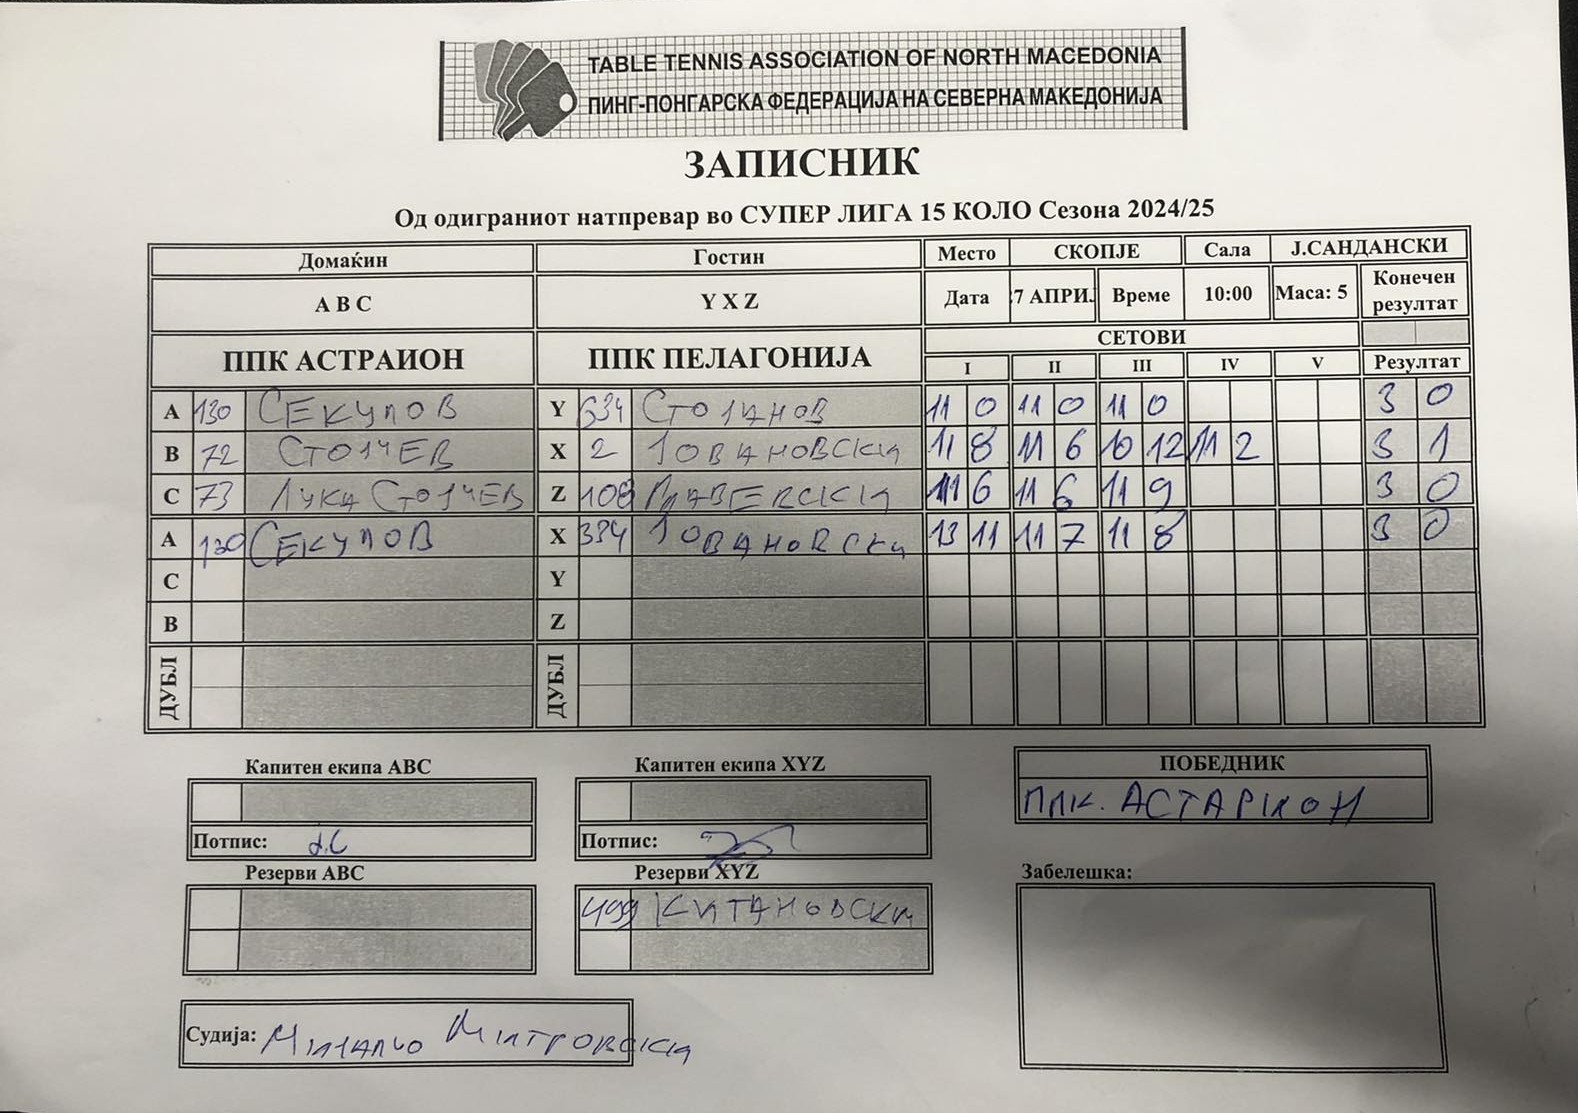 TABLE TENNIS ASSOCIATION OF NORTH MACEDONIA
ПИНГ-ПОНГАРСКА ФЕДЕРАЦИЈА НА СЕВЕРНА МАКЕДОНИЈА
ЗАПИСНИК
Од одиграниот натпревар во СУПЕР ЛИГА 15 КОЛО Сезона 2024/25
Домаќин Гостин Место СКОПЈЕ Сала Ј.САНДАНСКИ
A B C Y X Z Дата 7 АПРИ. Време 10:00 Маса: 5 Конечен резултат
ППК АСТРАИОН ППК ПЕЛАГОНИЈА СЕТОВИ
I II III IV V Резултат
A 130 СЕКУЛОВ Y 634 СТОЈАНОВ 11 0 11 0 11 0 3 0
B 72 СТОЈЧЕВ X 2 ЈОВАНОВСКИ 11 8 11 6 10 12 11 2 3 1
C 73 ЛУКА СТОЈЧЕВ Z 11 6 11 6 11 9 3 0
A 130 СЕКУЛОВ X 334 ЈОВАНОВСКИ 13 11 11 7 11 8 3 0
C Y
B Z
ДУБЛ ДУБЛ
Капитен екипа ABC Капитен екипа XYZ ПОБЕДНИК
ППК. АСТАРИОН
Потпис: Потпис:
Резерви ABC Резерви XYZ Забелешка:
499 КИТАНОВСКИ
Судија: МИХАЈЛО МИТРОВСКИ